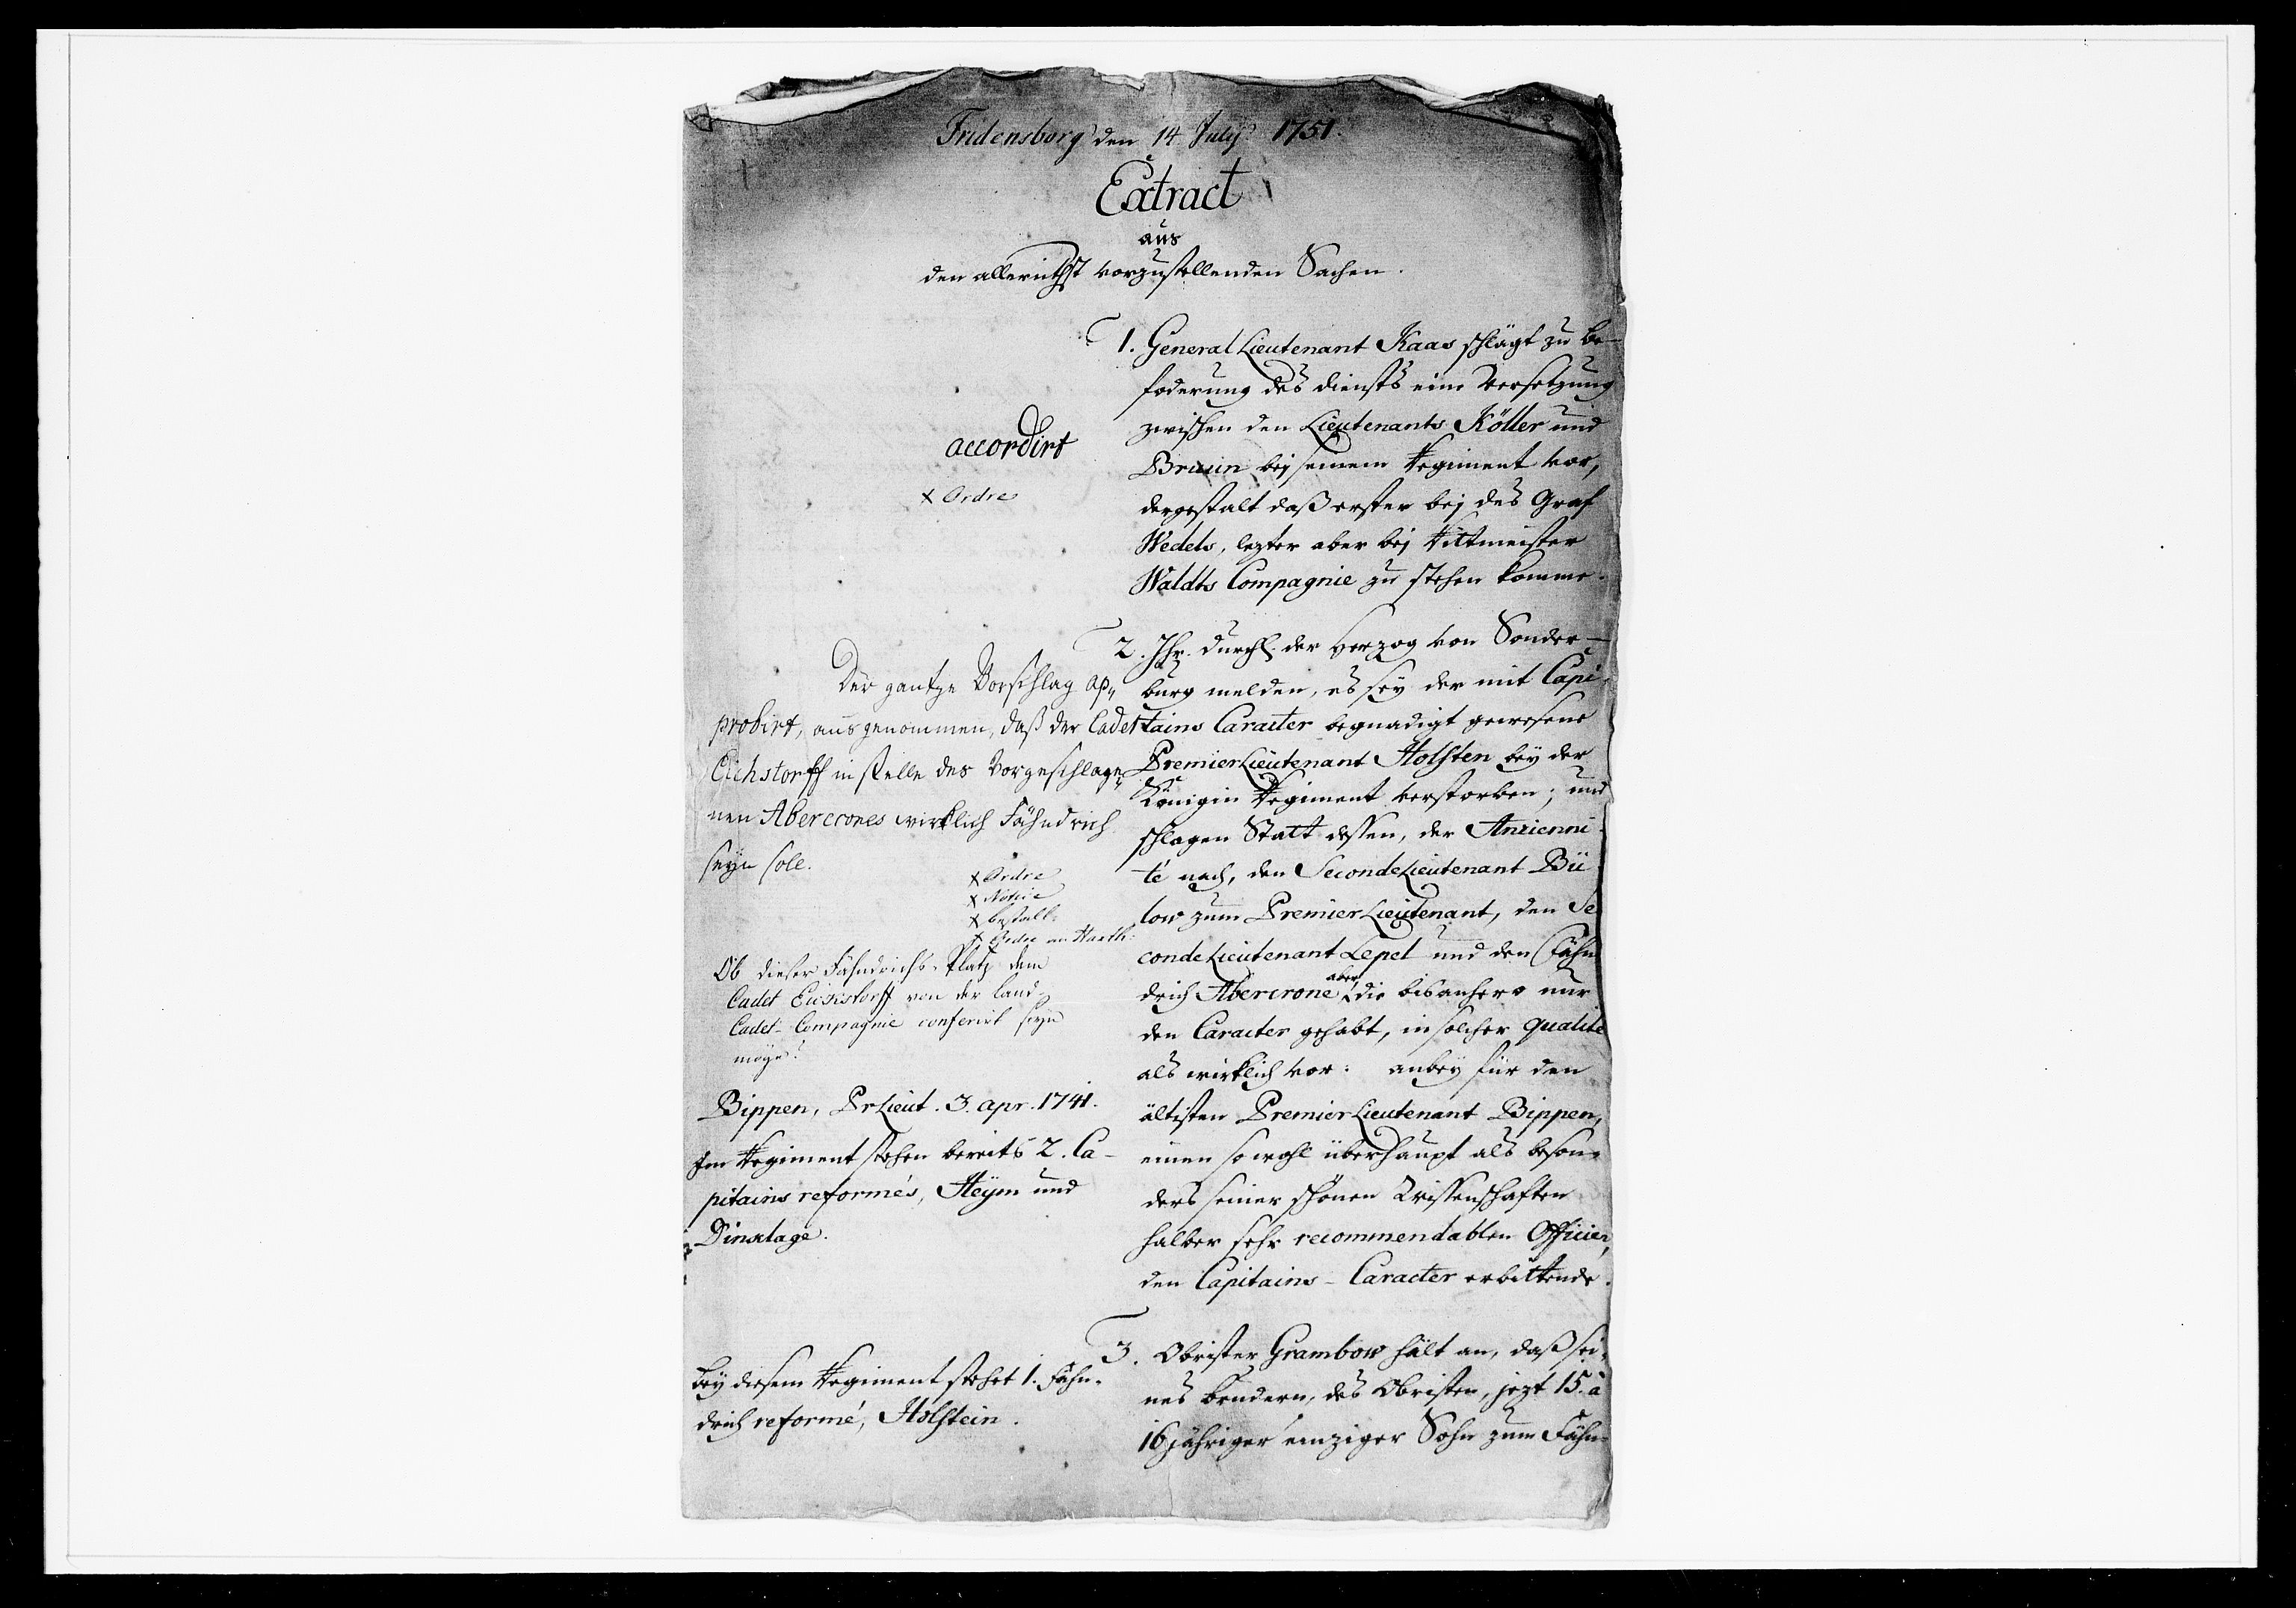 Fridensborg den 14 July 1751.
Extract
aus
den allerunthgst vorzustellenden Sachen.
1. General Lieutenant Kaas schlägt zu be-
foderung des diensts eine Versetzung
zwischen den Lieutenants Köller und
Bruin bej seinem Regiment vor,
dergestalt daß erster bej des Graf
Wedels, lezter aber bej Rittmeister
Waldts Compagnie zu stehen komme.
accordirt
x Ordre
2. Ihr. Durchl. der Herzog von Sonder-
burg melden, es seÿ der mit Capi-
tains Caracter begnadigt gewesene
Premier Lieutenant Holsten beÿ der
Königin Regiment verstorben; und
schlagen Statt dessen, der Ancienni-
té nach, den Seconde Lieutenant Bü
low zum Premier Lieutenant, den Se
conde Lieutenant Lepel und den Fähn
drich Abercrone aber, die bisanhero nur
den Caracter gehabt, in solcher qualité
als wirklich vor: anbeÿ für den
ältisten Premier Lieutenant Bippen,
einen sowohl überhaupt als beson-
ders seiner schönen Wissenschaften
halber sehr recommendablen Officier,
den Capitains-Caracter erbittende.
Der gantze Vorschlag ap-
probirt, ausgenommen, daß der Cadet
Eichstorff in stelle des Vorgeschlage-
nen Abercrones wirklich Fähndrich
seÿn solle.
x Ordre
x Notice
x bestall:
x Ordre an Harth:
Ob dieser Fähndrichs-Platz dem
Cadet Eichstorff von der land-
Cadet-Compagnie conferirt seÿn
möge?
Bippen, Pr Lieut. 3. apr. 1741.
Im Regiment stehen bereits 2. Ca-
pitains reformés, Heÿm und
Dinxlage.
3. Obrister Grambow hält an, daß sei-
nes bruders, des Obristen, jezt 15. à
16 jähriger einziger Sohn zum Fähn-
beÿ diesem Regiment stehet 1. Fähn-
drich reformé, Holstein.